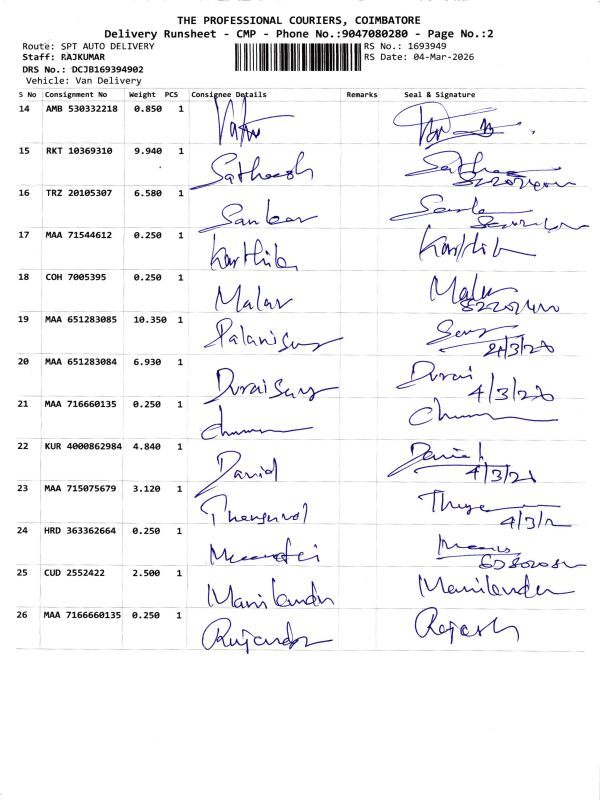 THE PROFESSIONAL COURIERS, COIMBATORE
Delivery Runsheet - CMP - Phone No.:9047080280 - Page No.:2
Route: SPT AUTO DELIVERY RS No.: 1693949
Staff: RAJKUMAR RS Date: 04-Mar-2026
DRS No.: DCJB169394902
Vehicle: Van Delivery
S No Consignment No Weight PCS Consignee Details Remarks Seal & Signature
14 AMB 530332218 0.850 1
15 RKT 10369310 9.940 1 Satheesh
16 TRZ 20105307 6.580 1 Sankar
17 MAA 71544612 0.250 1 Karthik Karthik
18 COH 7005395 0.250 1 Malar
19 MAA 651283085 10.350 1 Palanisamy
20 MAA 651283084 6.930 1 Duraisamy Durai
4/3/26
21 MAA 716660135 0.250 1
22 KUR 4000862984 4.840 1 David
23 MAA 715075679 3.120 1
24 HRD 363362664 0.250 1
25 CUD 2552422 2.500 1 Manikandn
26 MAA 7166660135 0.250 1 Rajesh